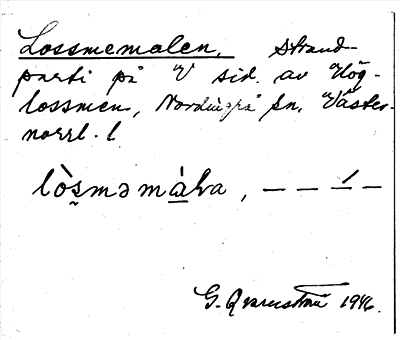 Lossmemalen, strand-
parti på V sid. av Hög-
lossmen, Nordingrå sn, Väster-
norrl. l.
lòs̬məmàlva, – – –́ –
G. Qvarnström 1946.